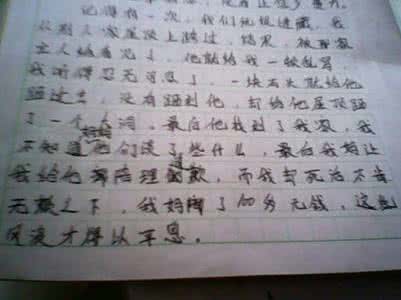 记得有一次，我们他捉迷藏，我
从别人家屋顶上跑过，结果，被那家
主人她看见了，他就给我一顿乱骂，
我听得忍无可忍了，一块石头就给他
砸过去，没有砸到他，却给他屋顶砸
了一个大洞，最后他找到了我家，我
不知道他们说了些什么，最后我妈让
我给他赔理道歉，而我却死活不肯
无赖之下，我妈陪了100多元钱，这些
风波才得以平息。